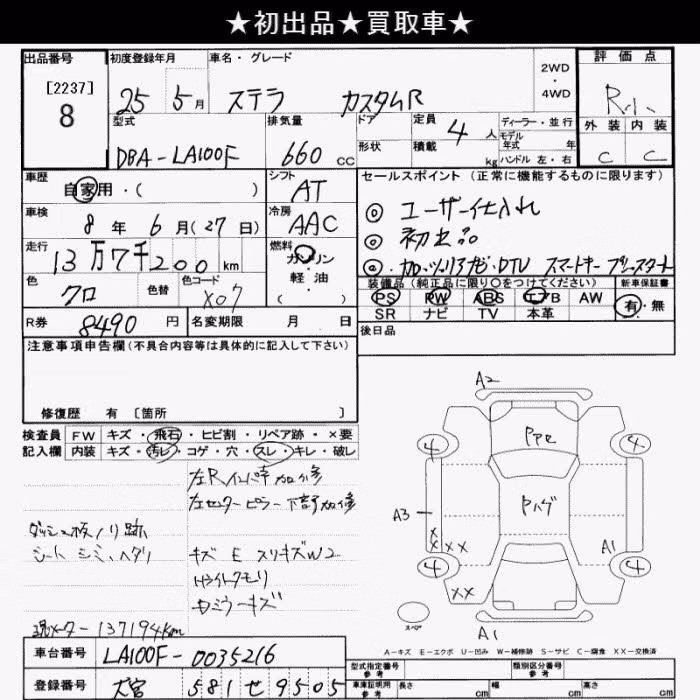 ★初出品★買取車★
出品番号 初度登録年月 車名・グレード 2WD・4WD 評価点
[2237] 8 25 5月 ステラ カスタムR R.小
外装 内装
C C
型式 排気量 ドア 定員 4人 ディーラー・並行
DBA-LA100F 660 CC 形状 積載 kg モデル年式 年 ハンドル 左・右
車歴 自家用・( ) シフト AT
セールスポイント(正常に機能するものに限ります)
車検 8年 6月(27日) 冷房 AAC
◎ ユーザー仕入れ
◎ 初出品
走行 13万7千200km 燃料 ガソリン・軽油 ( )
スマートキー プッシュスタート
色 クロ 色替 色コード X07
装備品(純正品に限り○をつけてください) 新車保証書
PS PW ABS エアB AW 有・無
SR ナビ TV 本革
R券 8490円 名変期限 月 日
後日品
注意事項申告欄(不具合内容等は具体的に記入して下さい)
修復歴 有 [箇所 ]
検査員記入欄 FW キズ・飛石・ヒビ割・リペア跡・×要
内装 キズ・汚レ・コゲ・穴・スレ・キレ・破レ
左Rインナー加修
左センターピラー下部加修
ダッシュ板ノリ跡
シート シミ、ヘタリ
キズ E スリキズW2
Hライトクモリ
現メーター137194km
A2
4 Pアセ 4
Pハゲ
A3
× × × ×
A1
4 4
××
スペア
A1
A-キズ E-エクボ U-凹み W-補修跡 S-サビ C-腐食 XX-交換済
車台番号 LA100F-0035216
型式指定番号 参考 類別区分番号 参考
登録番号 大宮 581 せ 9505
車庫証明用 参考 長さ cm 幅 cm 高さ cm